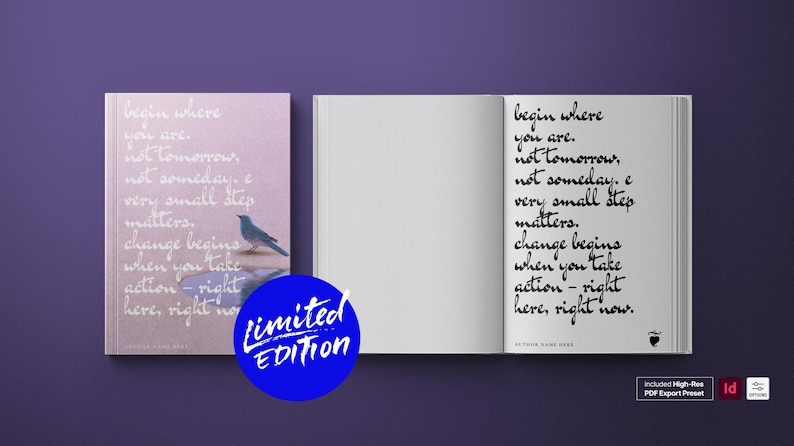 begin where
you are.
not tomorrow,
not someday. e
very small step
matters.
change begins
when you take
action – right
here, right now.
AUTHOR NAME HERE
Limited
EDITION
begin where
you are.
not tomorrow,
not someday. e
very small step
matters.
change begins
when you take
action – right
here, right now.
AUTHOR NAME HERE
included High-Res
PDF Export Preset
Id
OPTIONS